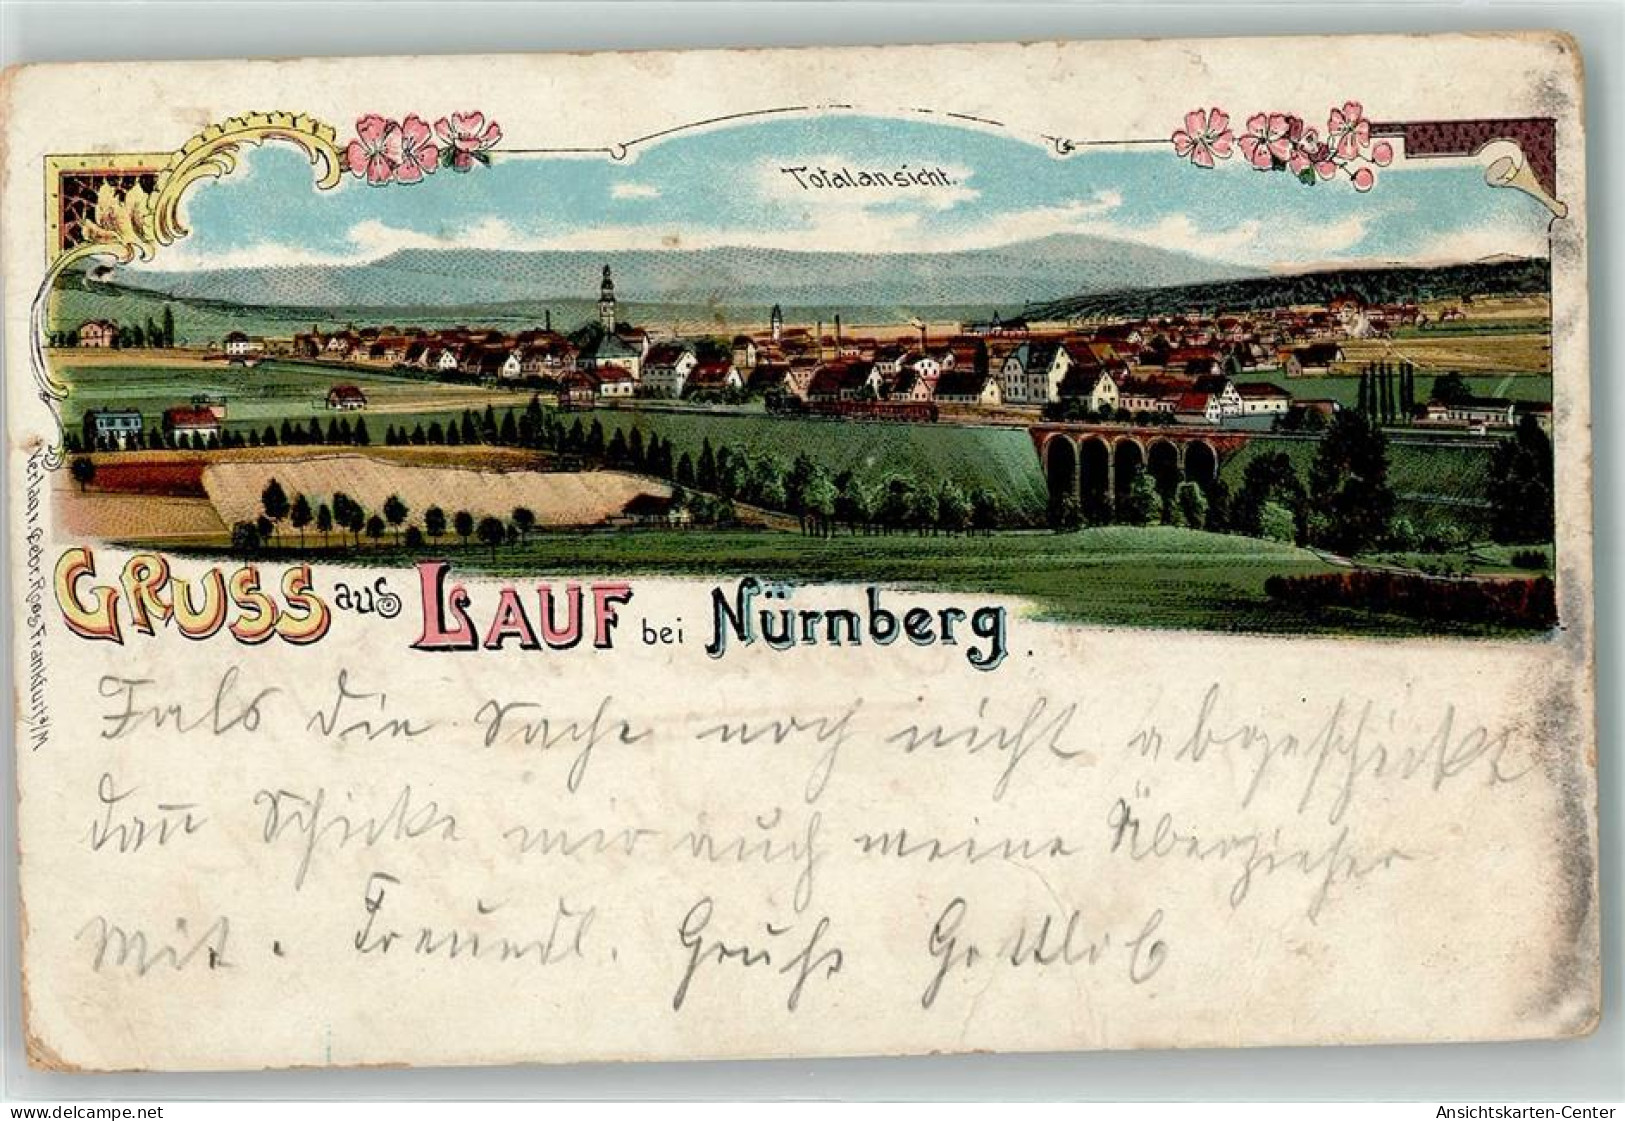 Totalansicht.
Verlag v. Gebr. Roos Frankfurt a/M
GRUSS aus LAUF bei Nürnberg.
Fals die Sache noch nicht abgeschickt
dan̄ schicke mir auch meine Überzieher
mit. Freundl. Gruß Gottlob
delcampe.net
Ansichtskarten-Center